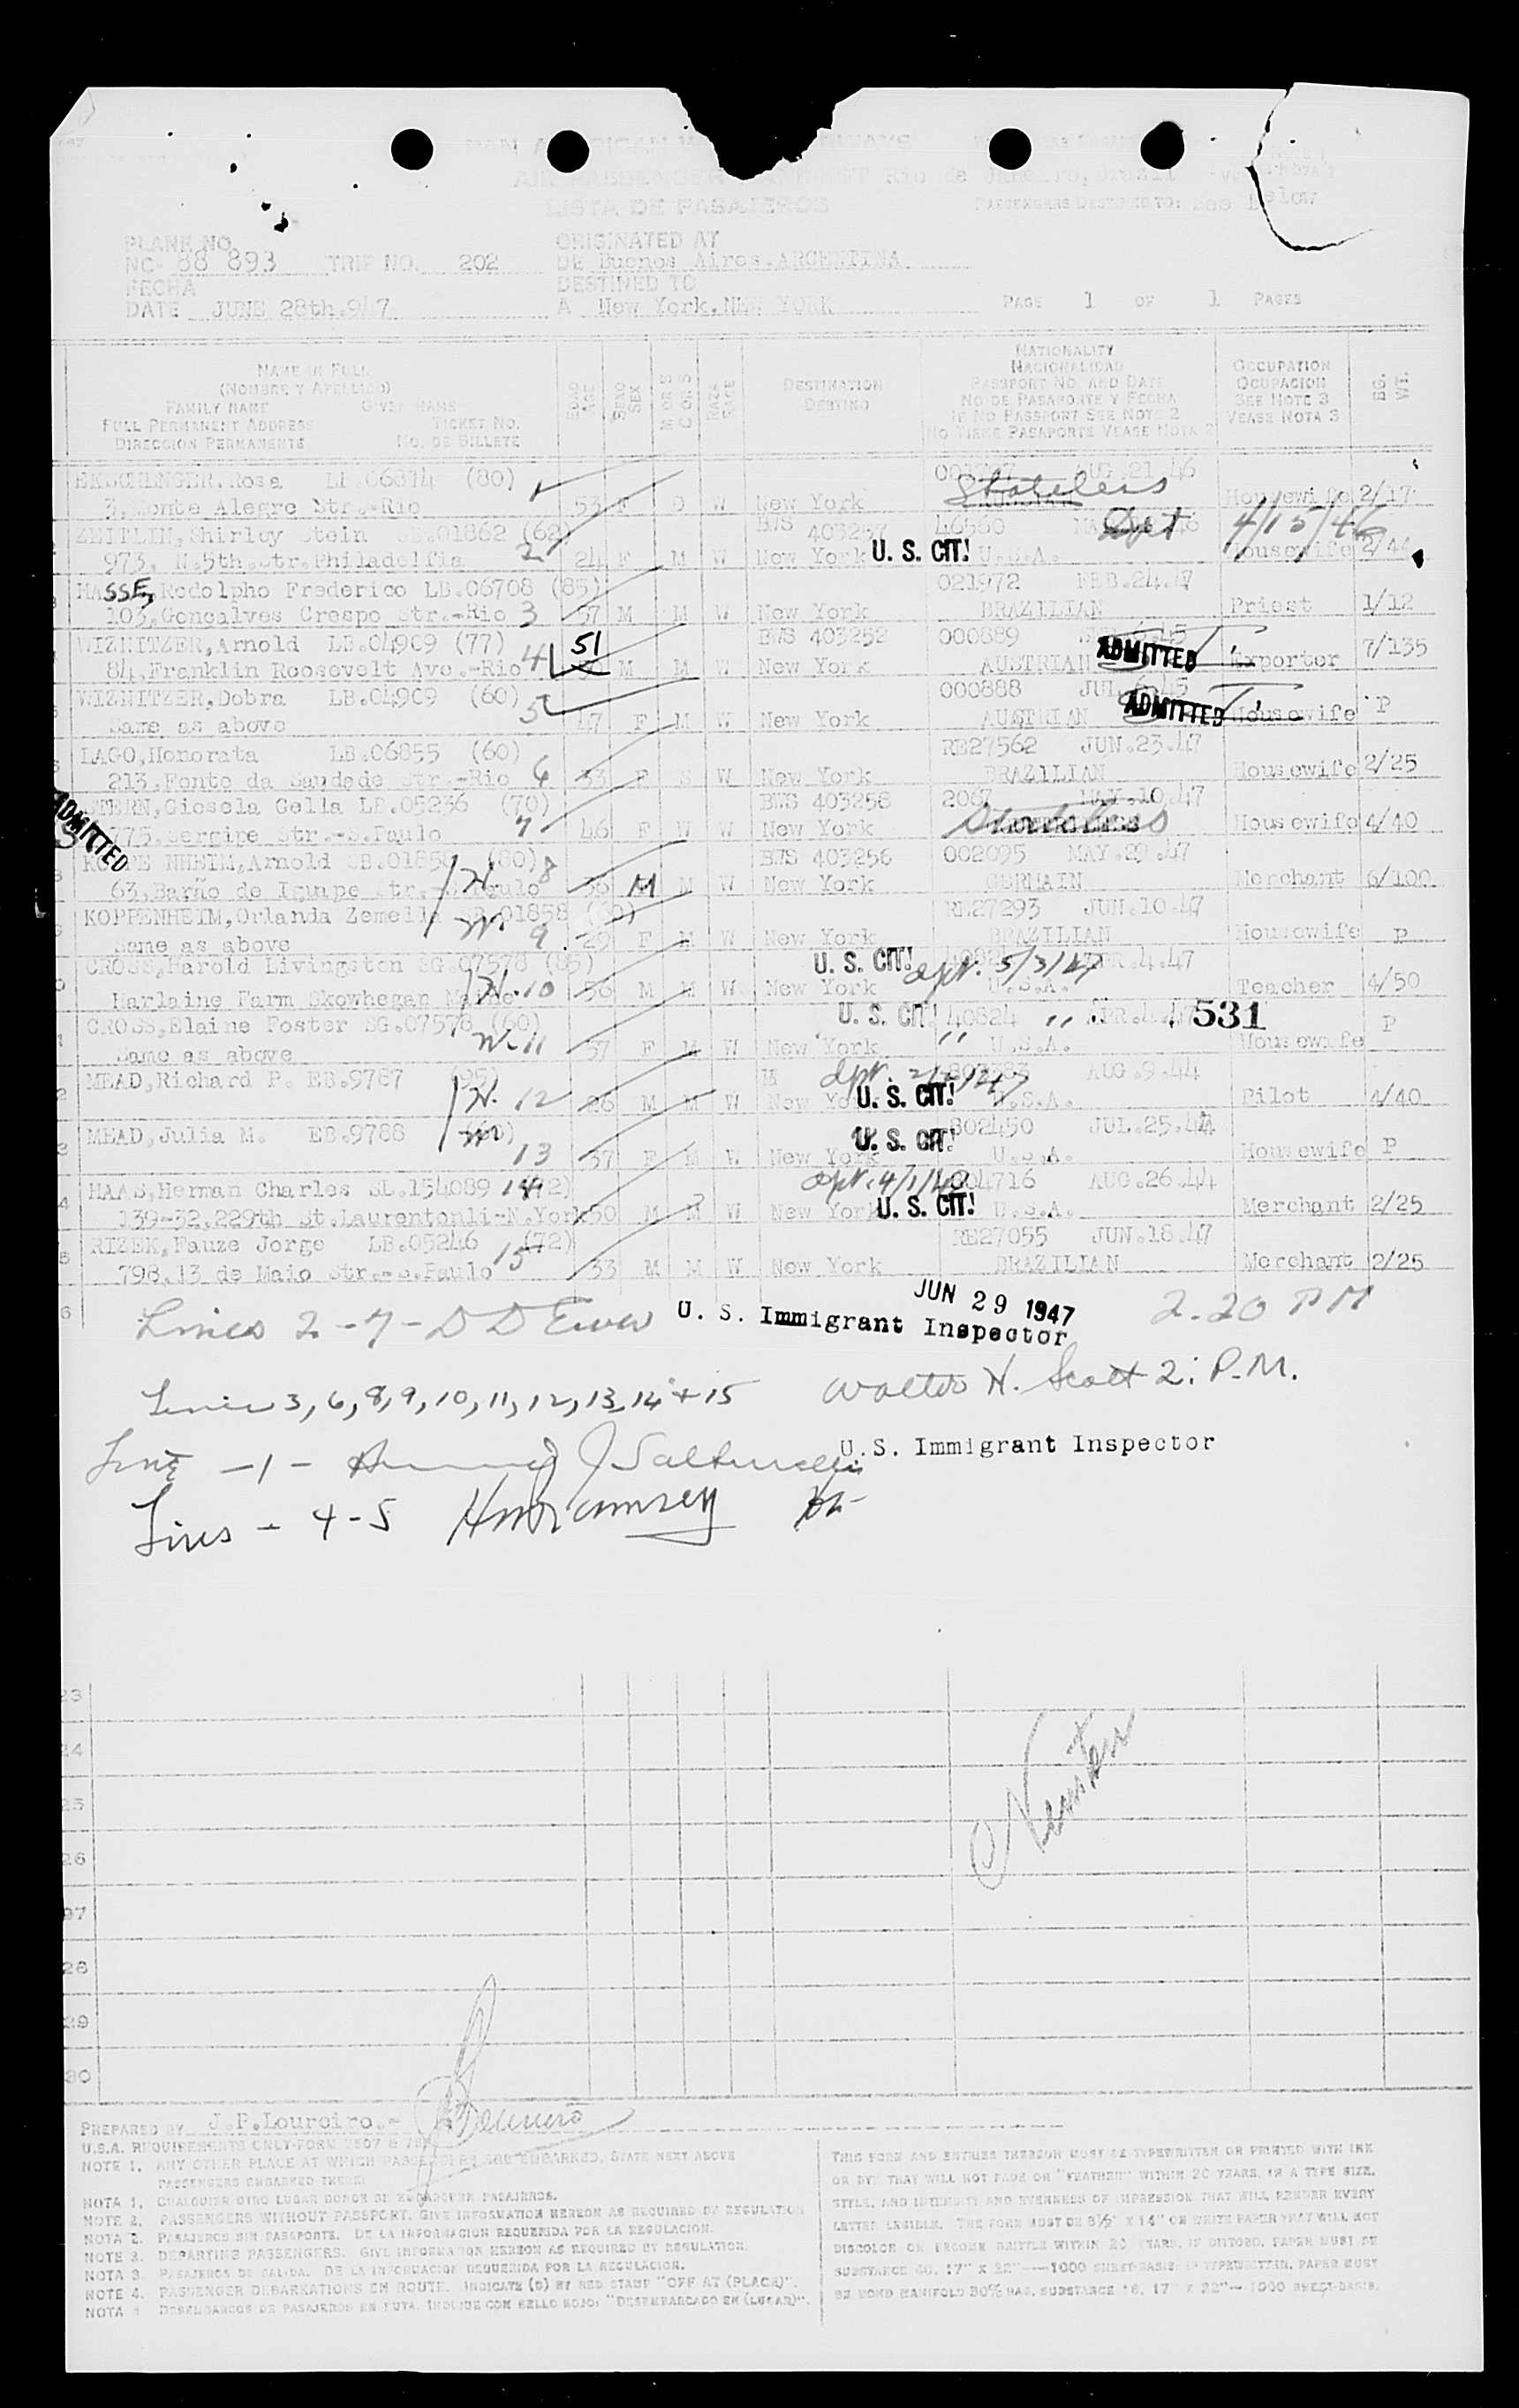 PAN AMERICAN
AIR PASSENGER MANIFEST Rio de Janeiro, Brazil
LISTA DE PASAJEROS PASSENGERS DESTINED TO: See Below
PLANE NO.
NC- 88 893 TRIP NO. 202
ORIGINATED AT
DE Buenos Aires.ARGENTINA
FECHA
DATE JUNE 28th.947
DESTINED TO
A New York.NEW YORK
PAGE 1 OF 1 PAGES
NAME IN FULL
(NOMBRE Y APELLIDO)
FAMILY NAME GIVEN NAME
FULL PERMANENT ADDRESS TICKET NO.
DIRECCION PERMANENTE NO. DE BILLETE
EDAD AGE
SEXO SEX
M OR S
C OR S
RAZA RACE
DESTINATION
DESTINO
NATIONALITY
NACIONALIDAD
PASSPORT NO. AND DATE
NO DE PASAPORTE Y FECHA
IF NO PASSPORT SEE NOTE 2
NO TIENE PASAPORTE VEASE NOTA 2
OCCUPATION
OCUPACION
SEE NOTE 3
VEASE NOTA 3
BG. WT.
Rosa LB.06874 (80) 1 AUG.21.46
3,Monte Alegre Str.-Rio 53 F W New York Stateless Housewife 2/17
ZEITLIN,Shirley Stein 01862 (62) BWS 403257 46560 Dpt 4/15/46
973. N.5th.Str.Philadelfia 2 24 F M W New York U. S. CIT! U.S.A. Housewife 2/44
HASSE,Rodolpho Frederico LB.06708 (85) 021972 FEB.24.47
103,Goncalves Crespo Str.-Rio 3 57 M M W New York BRAZILIAN Priest 1/12
WIZNITZER,Arnold LB.04909 (77) 51 BWS 403252 000889
84,Franklin Roosevelt Ave.-Rio 4 M M W New York AUSTRIAN ADMITTED Exporter 7/135
WIZNITZER,Dobra LB.04909 (60) 000888 JUL.6.45
Same as above 5 47 F M W New York AUSTRIAN ADMITTED Housewife P
LAGO,Honorata LB.06855 (60) RE27562 JUN.23.47
213,Fonte da Saudade Str.-Rio 6 33 F S W New York BRAZILIAN Housewife 2/25
ADMITTED
STERN,Giesela Gella LB.05236 (70) BWS 403258 2067 MAY.10.47
775,Sergipe Str.-S.Paulo 7 46 F W W New York Stateless Housewife 4/40
Arnold SB.01858 (80) 8 BWS 403256 002095 MAY.29.47
63,Barão de Iguape Str.-S.Paulo 36 M M W New York GERMAIN Merchant 6/100
KOPPENHEIM,Orlanda Zemella SB.01858 RE27293 JUN.10.47
Same as above 9 29 F M W New York BRAZILIAN Housewife P
CROSS,Harold Livingston SG.07578 (85) U. S. CIT! dpt. 5/3/47 APR.4.47
Harlaine Farm Skowhegan Maine 10 56 M M W New York U.S.A. Teacher 4/50
CROSS,Elaine Foster SG.07578 (60) U. S. CIT! 40824 " APR.4.47 531 P
Same as above 11 57 F M W New York " U.S.A. Housewife
MEAD,Richard P. EB.9787 (95) AUG.9.44
12 26 M M W New York U. S. CIT! U.S.A. Pilot 4/40
MEAD,Julia M. EB.9788 U. S. CIT! 802450 JUL.25.44
13 37 F M W New York U.S.A. Housewife P
HAAS,Herman Charles SL.154089 14 AUG.26.44
139-32,229th St.Laurentonli-N.York 50 M M W New York U. S. CIT! U.S.A. Merchant 2/25
RIZEK,Fauze Jorge LB.05246 (72) RE27055 JUN.18.47
798,13 de Maio Str.-S.Paulo 15 33 M M W New York BRAZILIAN Merchant 2/25
JUN 29 1947 2.20 PM
Lines 2-7- U. S. Immigrant Inspector
Lines 3,6,8,9,10,11,12,13,14 + 15 Walter H. Scott 2: P.M.
Line -1- U.S. Immigrant Inspector
Lines - 4-5
23
24
25
26
27
28
29
30
PREPARED BY J.P.Loureiro.-
U.S.A. REQUIREMENTS ONLY-FORM
NOTE 1. ANY OTHER PLACE AT WHICH PASSENGERS ARE EMBARKED, STATE NEXT ABOVE
PASSENGERS EMBARKED THERE.
NOTA 1. CUALQUIER OTRO LUGAR DONDE SE EMBARQUEN PASAJEROS.
NOTE 2. PASSENGERS WITHOUT PASSPORT. GIVE INFORMATION HEREON AS REQUIRED BY REGULATION
NOTA 2. PASAJEROS SIN PASAPORTE. DE LA INFORMACION REQUERIDA POR LA REGULACION.
NOTE 3. DEPARTING PASSENGERS. GIVE INFORMATION HEREON AS REQUIRED BY REGULATION.
NOTA 3. PASAJEROS DE SALIDA. DE LA INFORMACION REQUERIDA POR LA REGULACION.
NOTE 4. PASSENGER DEBARKATIONS EN ROUTE. INDICATE (D) BY RED STAMP "OFF AT (PLACE)".
NOTA 4 DESEMBARCOS DE PASAJEROS EN RUTA. INDIQUE CON SELLO ROJO: "DESEMBARCADO EN (LUGAR)".
THIS FORM AND ENTRIES THEREON MUST BE TYPEWRITTEN OR PRINTED WITH INK
OR DYE THAT WILL NOT FADE OR "FEATHER" WITHIN 20 YEARS, IN A TYPE SIZE,
STYLE, AND INTENSITY AND EVENNESS OF IMPRESSION THAT WILL RENDER EVERY
LETTER LEGIBLE. THE FORM MUST BE 8½" X 14" ON WHITE PAPER THAT WILL NOT
DISCOLOR OR BECOME BRITTLE WITHIN 20 YEARS. IF DITTOED, PAPER MUST BE
SUBSTANCE 40, 17" X 22"—1000 SHEET-BASIS; IF TYPEWRITTEN, PAPER MUST
BE BOND MANIFOLD 50% RAG, SUBSTANCE 16, 17" X 22"—1000 SHEET-BASIS.